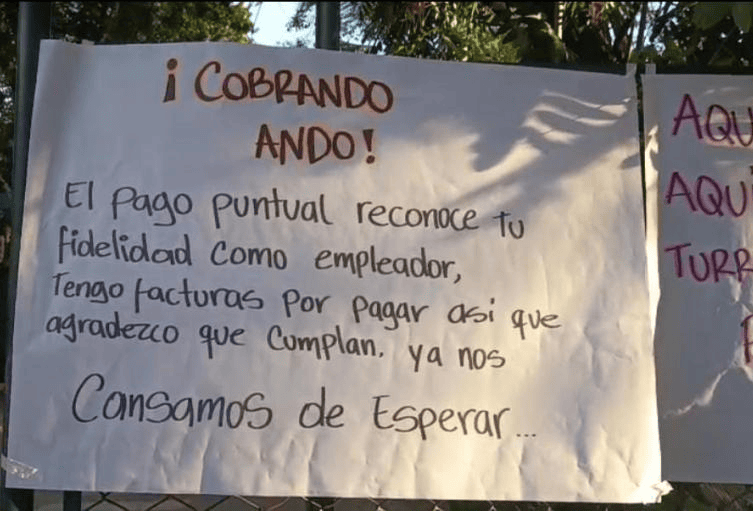 ¡ COBRANDO
ANDO!
El pago puntual reconoce tu
fidelidad como empleador,
Tengo facturas por pagar asi que
agradezco que cumplan, ya nos
Cansamos de Esperar...